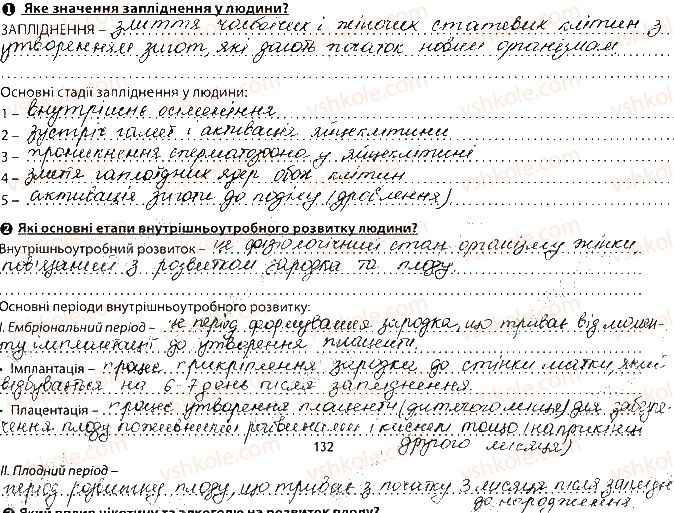 1 Яке значення запліднення у людини?
ЗАПЛІДНЕННЯ – злиття чоловічих і жіночих статевих клітин з
утворенням зигот, які дають початок новим організмам.
Основні стадії запліднення у людини:
1 – внутрішнє осіменіння
2 – зустріч гамет і активація яйцеклітини
3 – проникнення сперматозоона у яйцеклітині
4 – злитя гаплоїдних ядер обох клітин
5 – активація зиготи до поділу (дроблення)
2 Які основні етапи внутрішньоутробного розвитку людини?
Внутрішньоутробний розвиток – це фізіологічний стан організму жінки,
пов'язаний з розвитком зародка та плоду.
Основні періоди внутрішньоутробного розвитку:
I. Ембріональний період – це період формування зародка, що триває від момен-
ту імплантації до утворення плаценти.
• Імплантація – процес прикріплення зародка до стінки матки, який
відбувається на 6-7 день після запліднення.
• Плацентація – процес утворення плаценти (дитячого місця) для забезпе-
чення плоду поживними речовинами і киснем тощо (наприкінці
132 другого місяця)
II. Плодний період –
період розвитку плоду, що триває з початку 3 місяця після заплідн
до народження.
vshkole.com